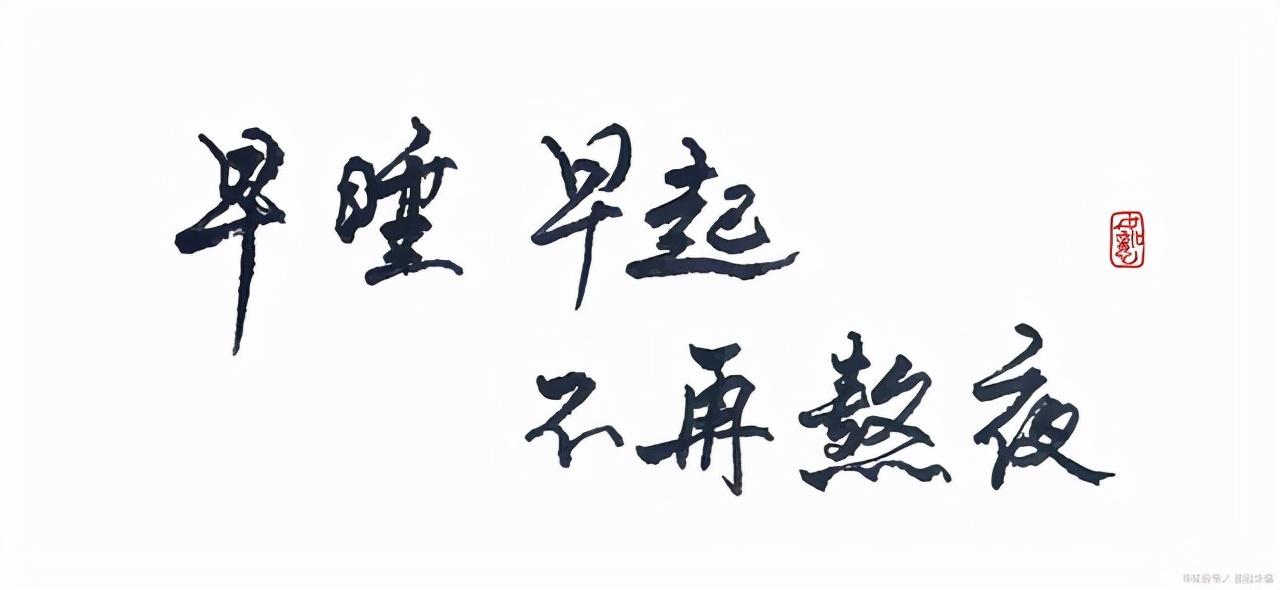 早睡早起
不再熬夜